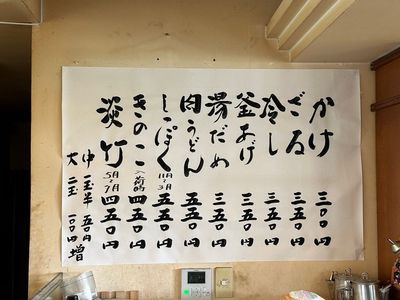 かけ 三〇〇円
ざる 三五〇円
冷し 三五〇円
釜あげ 三五〇円
湯だめ 三五〇円
肉うどん 五五〇円
しっぽく 11月〜3月 五五〇円
きのこ 入荷時 四五〇円
淡竹 5月〜7月 四五〇円
中 一玉半 五〇円
大 二玉 一〇〇円 増